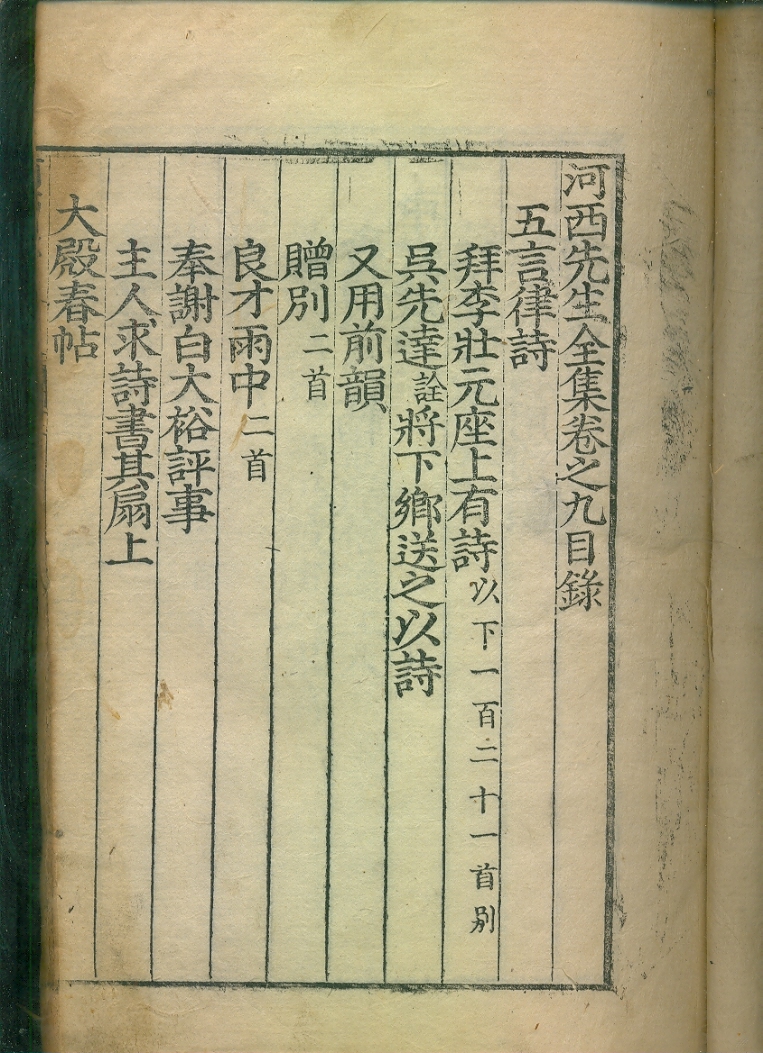 河西先生全集卷之九目錄
五言律詩
拜李壯元座上有詩以下一百二十一首別
吳先達詮將下鄉送之以詩
又用前韻
贈別二首
良才雨中二首
奉謝白大裕評事
主人求詩書其扇上
大殿春帖